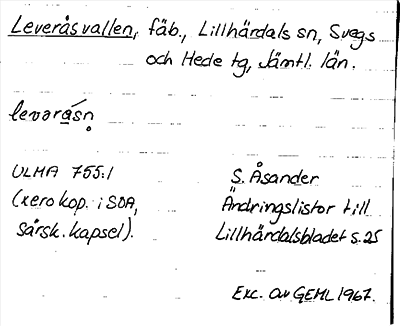 Leveråsvallen, fäb., Lillhärdals sn, Svegs
och Hede tg, Jämtl. län.
levərásn
ULMA 755:1
S. Åsander
(xerokop. i SOA,
Ändringslistor till
särsk. kapsel).
Lillhärdalsbladet s. 25
Exc. av GEML 1967.